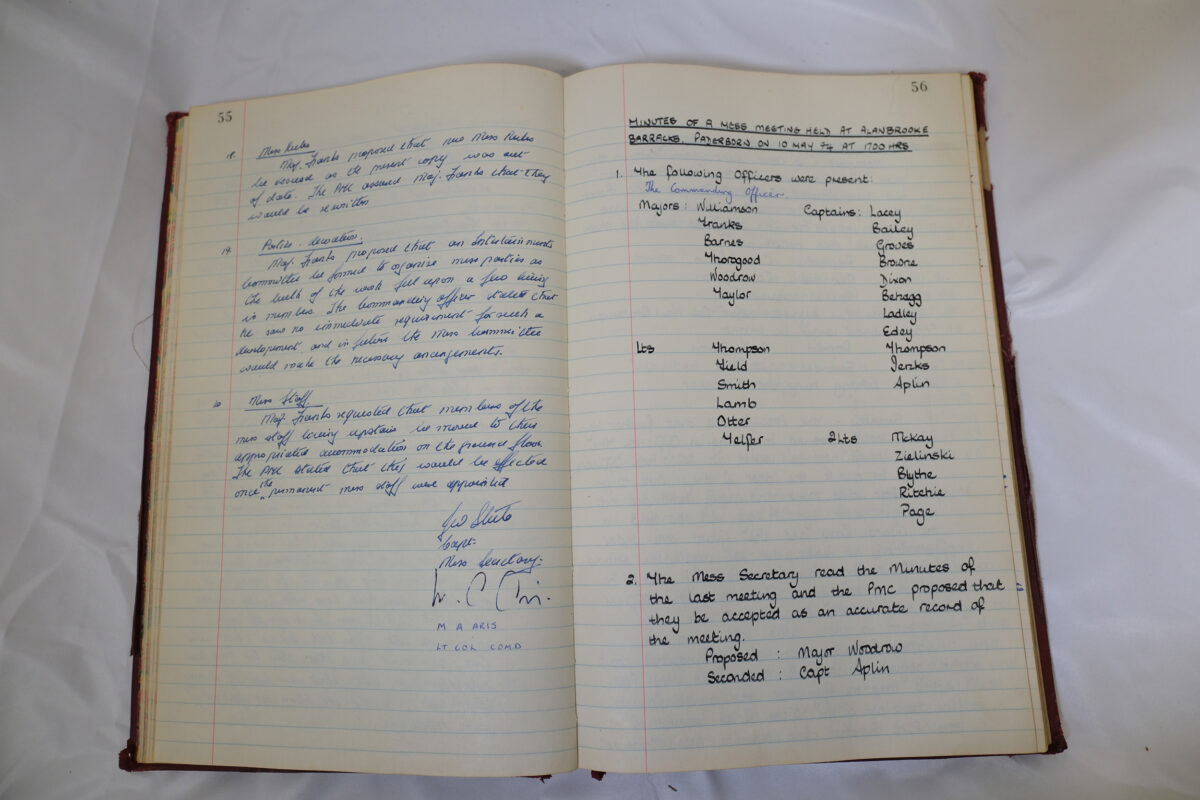 55
18. Mess Rules
Maj. Franks proposed that new Mess Rules
be issued as the present copy was out
of date. The PMC assured Maj. Franks that they
would be rewritten
19.
Maj. Franks proposed that an Entertainments
Committee be formed to organise mess parties as
the bulk of the work fell upon a few living
in members. The Commanding Officer stated that
he saw no immediate requirement for such a
development and in future the Mess Committee
would make the necessary arrangements.
20 Mess Staff
Maj. Franks requested that members of the
mess staff living upstairs be moved to their
appropriated accommodation on the ground floor.
The PMC stated that this would be effected
once the permanent mess staff were appointed
Capt.
Mess Secretary.
M A ARIS
LT COL COMD
56
MINUTES OF A MESS MEETING HELD AT ALANBROOKE
BARRACKS, PADERBORN ON 10 MAY 74 AT 1700 HRS
1. The following Officers were present:
The Commanding Officer.
Majors: Williamson Captains: Lacey
Franks Bailey
Barnes Groves
Thorogood Browne
Woodrow Dixon
Taylor Behagg
Ladley
Edey
Lts Thompson Thompson
Field Jenks
Smith Aplin
Lamb
Otter
Telfer 2Lts McKay
Zielinski
Blythe
Ritchie
Page
2. The Mess Secretary read the Minutes of
the last meeting and the PMC proposed that
they be accepted as an accurate record of
the meeting.
Proposed : Major Woodrow
Seconded : Capt Aplin